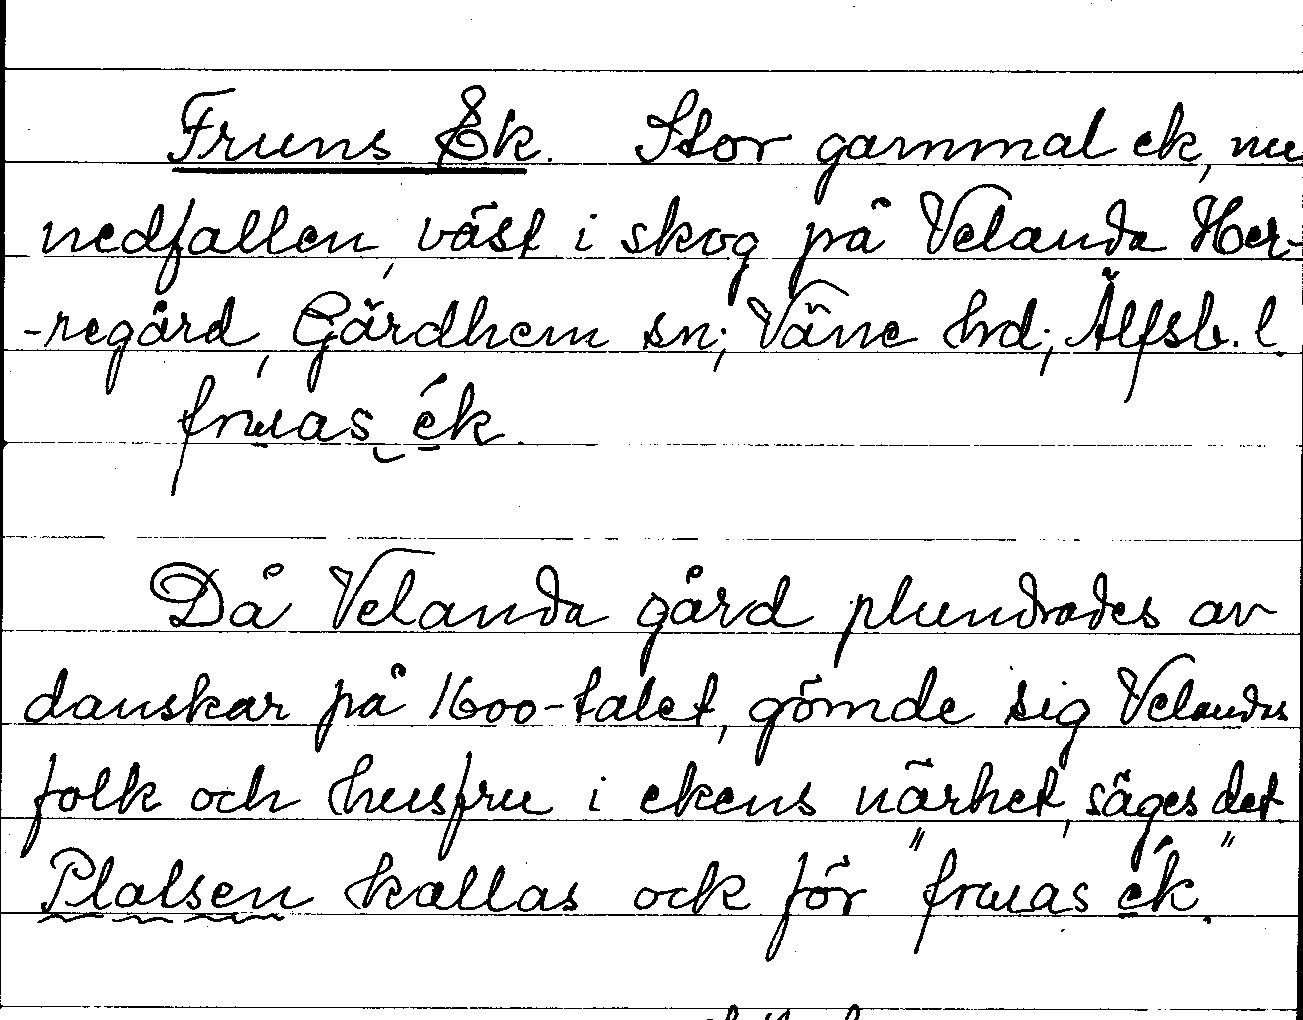 Fruns Ek. Stor gammal ek, nu
nedfallen, väst i skog på Velanda Her-
-regård, Gärdhem sn; Väne hd; Älfsb. l.
fruas ék.
Då Velanda gård plundrades av
danskar på 1600-talet, gömde sig Velandas
folk och husfru i ekens närhet, säges det.
Platsen kallas ock för "fruas ék."